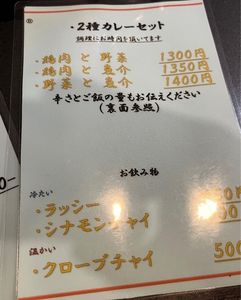 ・2種カレーセット
調理にお時間を頂いてます
・鶏肉と野菜 1300円
・鶏肉と魚介 1350円
・野菜と魚介 1400円
辛さとご飯の量もお伝えください
(裏面参照)
お飲み物
冷たい
・ラッシー
・シナモンチャイ
温かい
・クローブチャイ 500